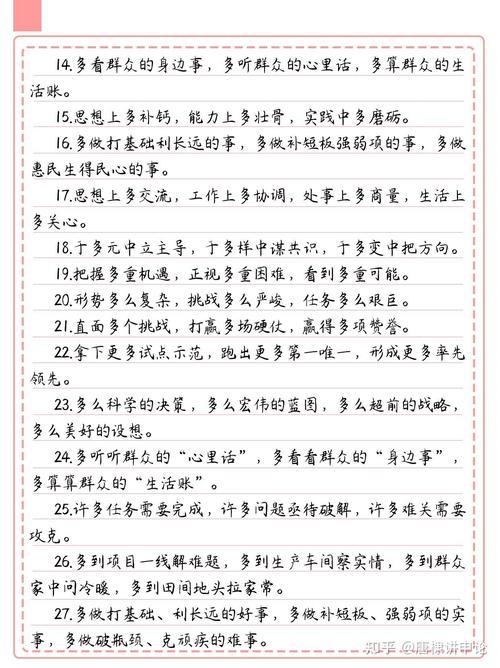 14.多看群众的身边事，多听群众的心里话，多算群众的生
活账。
15.思想上多补钙，能力上多壮骨，实践中多磨砺。
16.多做打基础利长远的事，多做补短板强弱项的事，多做
惠民生得民心的事。
17.思想上多交流，工作上多协调，处事上多商量，生活上
多关心。
18.于多元中立主导，于多样中谋共识，于多变中把方向。
19.把握多重机遇，正视多重困难，看到多重可能。
20.形势多么复杂，挑战多么严峻，任务多么艰巨。
21.直面多个挑战，打赢多场硬仗，赢得多项赞誉。
22.拿下更多试点示范，跑出更多第一唯一，形成更多率先
领先。
23.多么科学的决策，多么宏伟的蓝图，多么超前的战略，
多么美好的设想。
24.多听听群众的“心里话”，多看看群众的“身边事”，
多算算群众的“生活账”。
25.许多任务需要完成，许多问题亟待破解，许多难关需要
攻克。
26.多到项目一线解难题，多到生产车间察实情，多到群众
家中问冷暖，多到田间地头拉家常。
27.多做打基础、利长远的好事，多做补短板、强弱项的实
事，多做破瓶颈、克顽疾的难事。
知乎 @胭襟讲申论